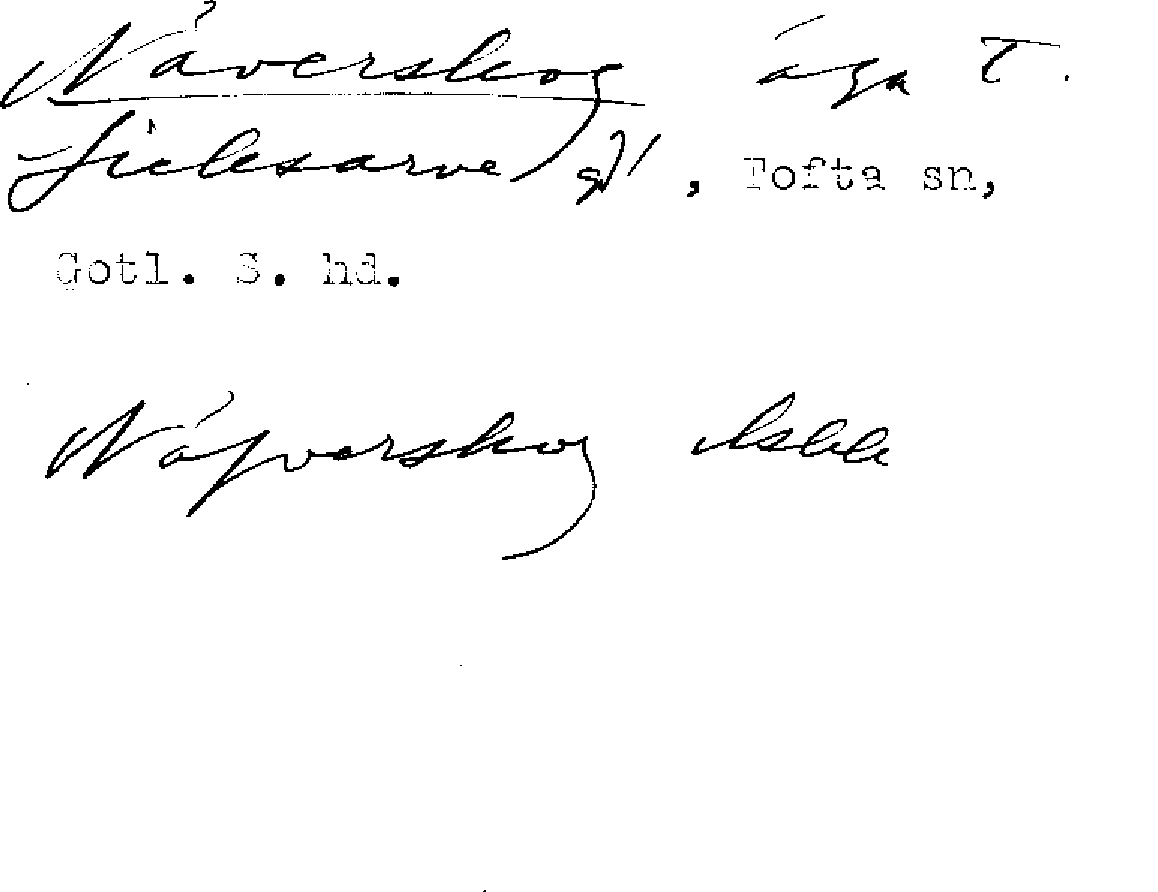 Näverskog äga T.
Licksarve gd 1, Tofta sn,
Gotl. S. hd.
Näfverskog